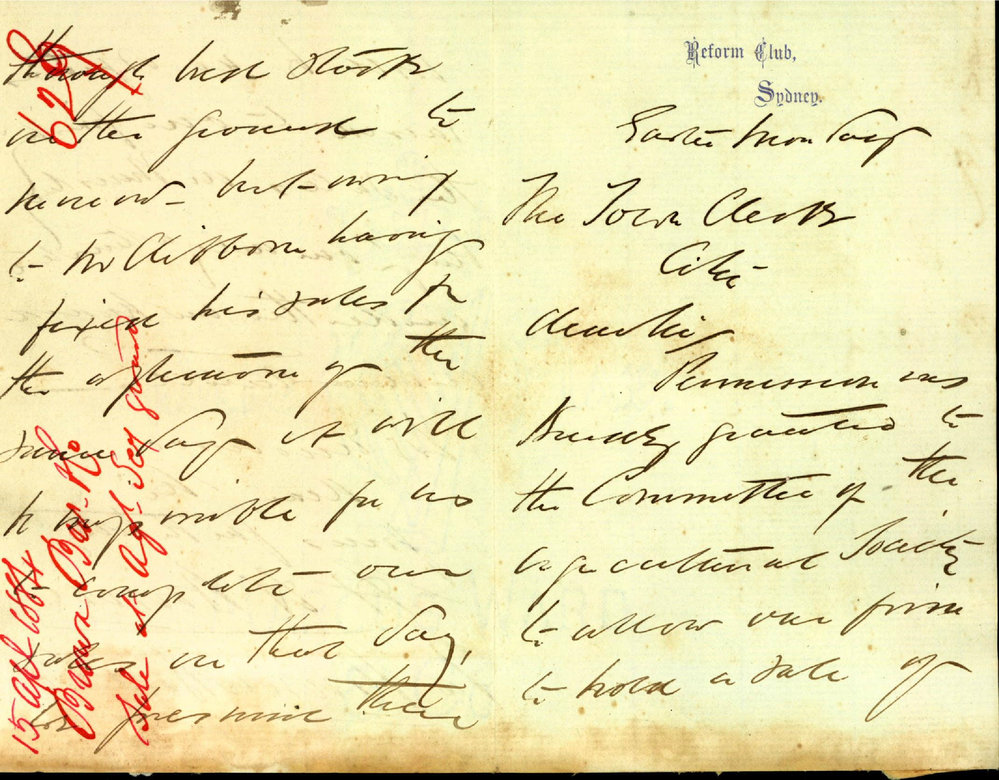 Reform Club,
Sydney.
Easter Monday
The Town Clerk
City
Dear Sir
Permission was
kindly granted to
the Committee of the
agricultural Society
to allow our firm
to hold a sale of
through bred stock
on the ground to
morrow but owing
to Mr Clibborn having
fixed his sales for
the afternoon of the
same day it will
be impossible for us
to complete our
sales on that day,
presume there
629
15 Apl 1884
Sale at Agl Socy ground